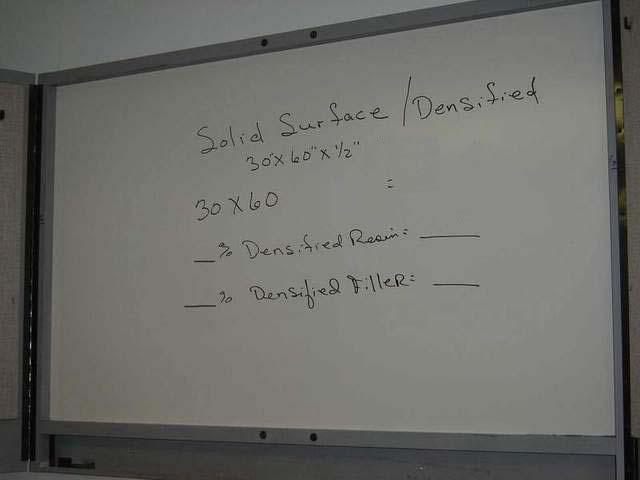 Solid Surface / Densified
30"X 60" X 1/2"
30 X 60 =
__% Densified Resin= ____
__% Densified Filler= ____